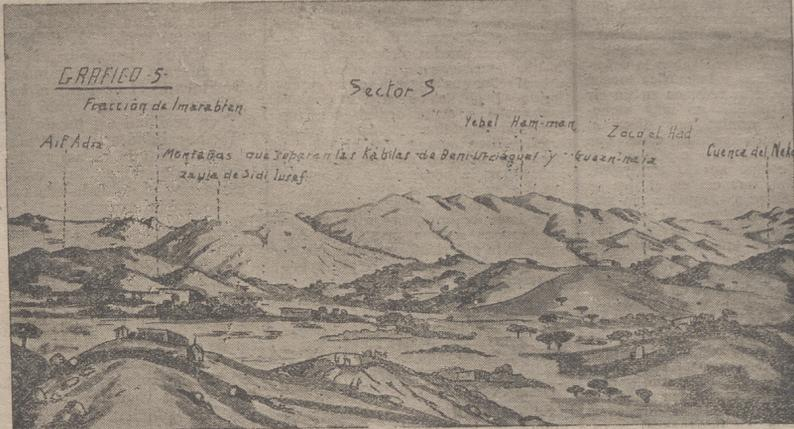 GRAFICO -5-
Sector S
Fracción de Imarabten
Yebel Ham-man
Zoco el Had
Ait Adia
Montañas que separan las Kábilas de Beni-Urriaguel y Guezn-naia
Cuenca del
zauia de Sidi Iusef